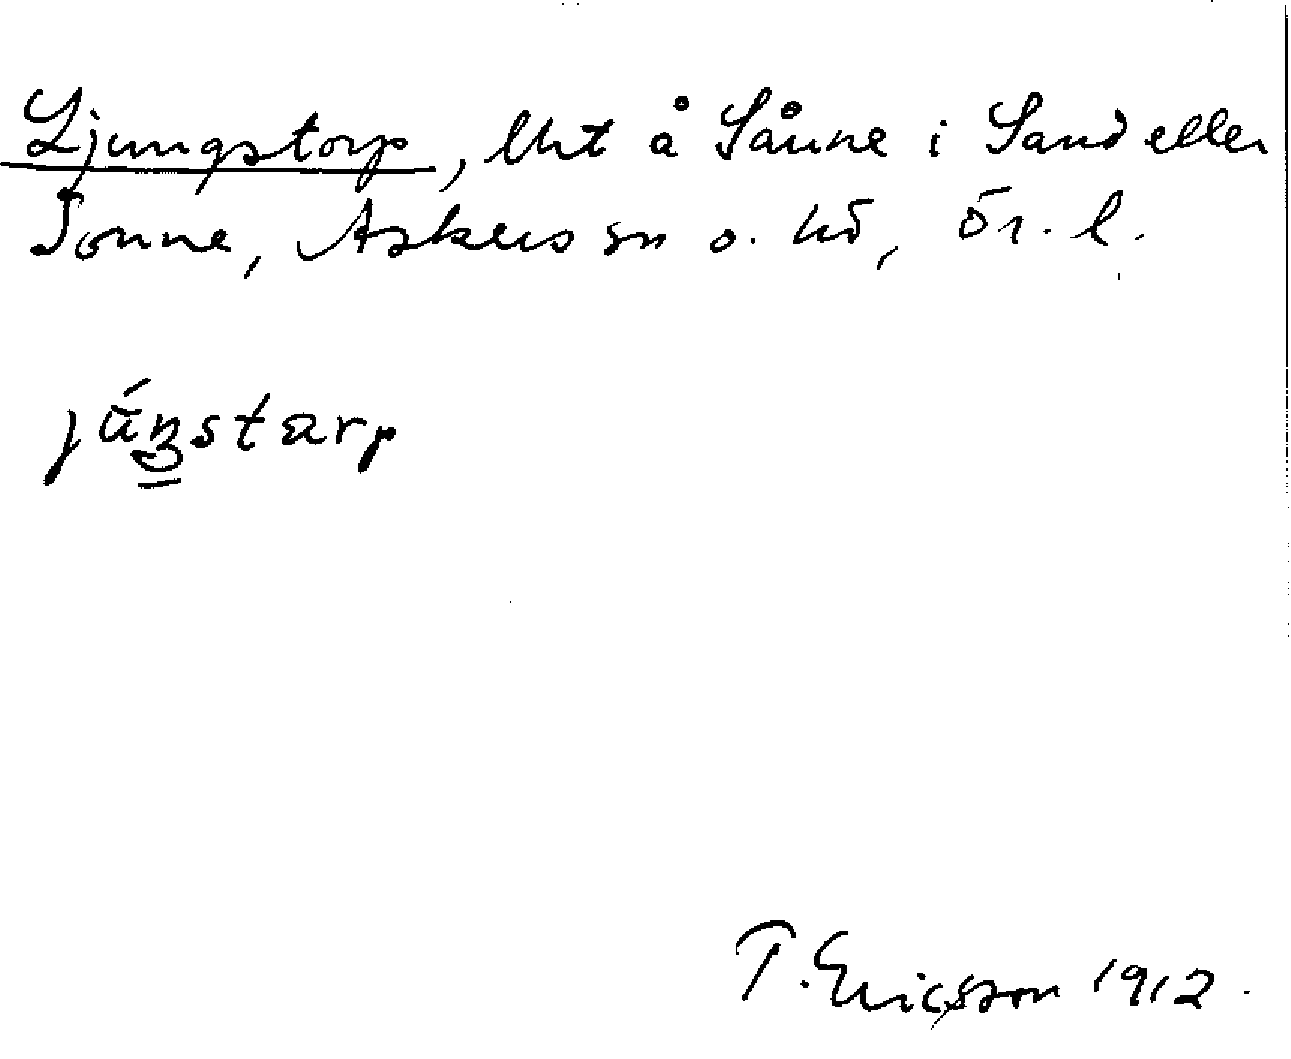 Ljungstorp, lht å Sånne i Sand eller
Sonne, Askers sn o. hd, Ör. l.
T. Ericsson 1912.